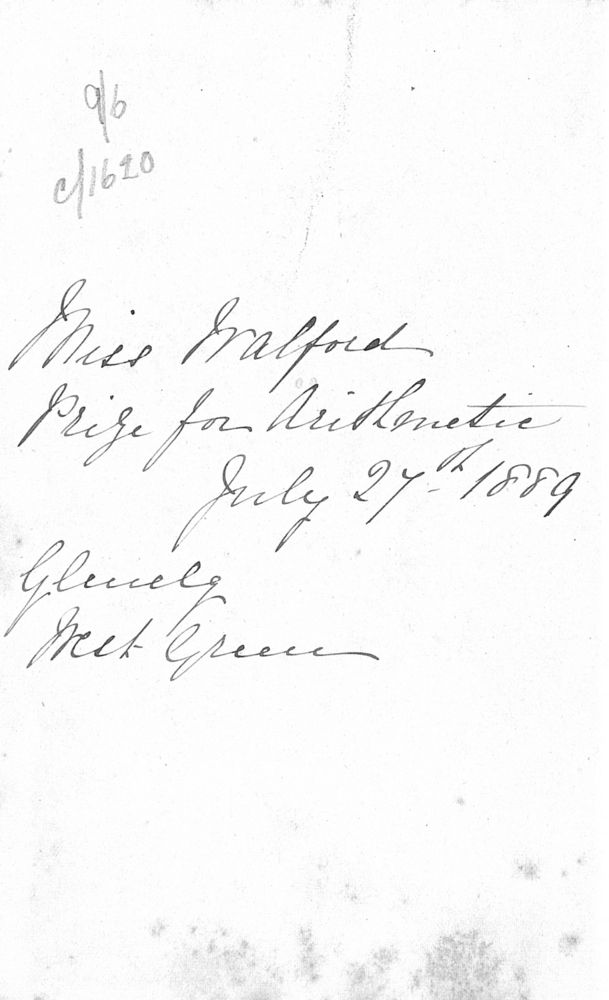 9/6
c/1620
Miss Walford
Prize for Arithmetic
July 27th 1889
Glenelg
West Green